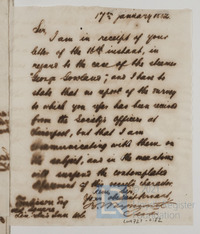 17th January 1882
Sir
I am in receipt of your
letter of the 16th instant, in
regard to the case of the steamer
"George Gowland"; and I have to
state that no report of the survey
to which you refer has been received
from the Society's Officers at
Liverpool, but that I am
communicating with them on
the subject, and in the meantime
will suspend the contemplated
of this vessel's character
I am, Sir
Your obedient Servant